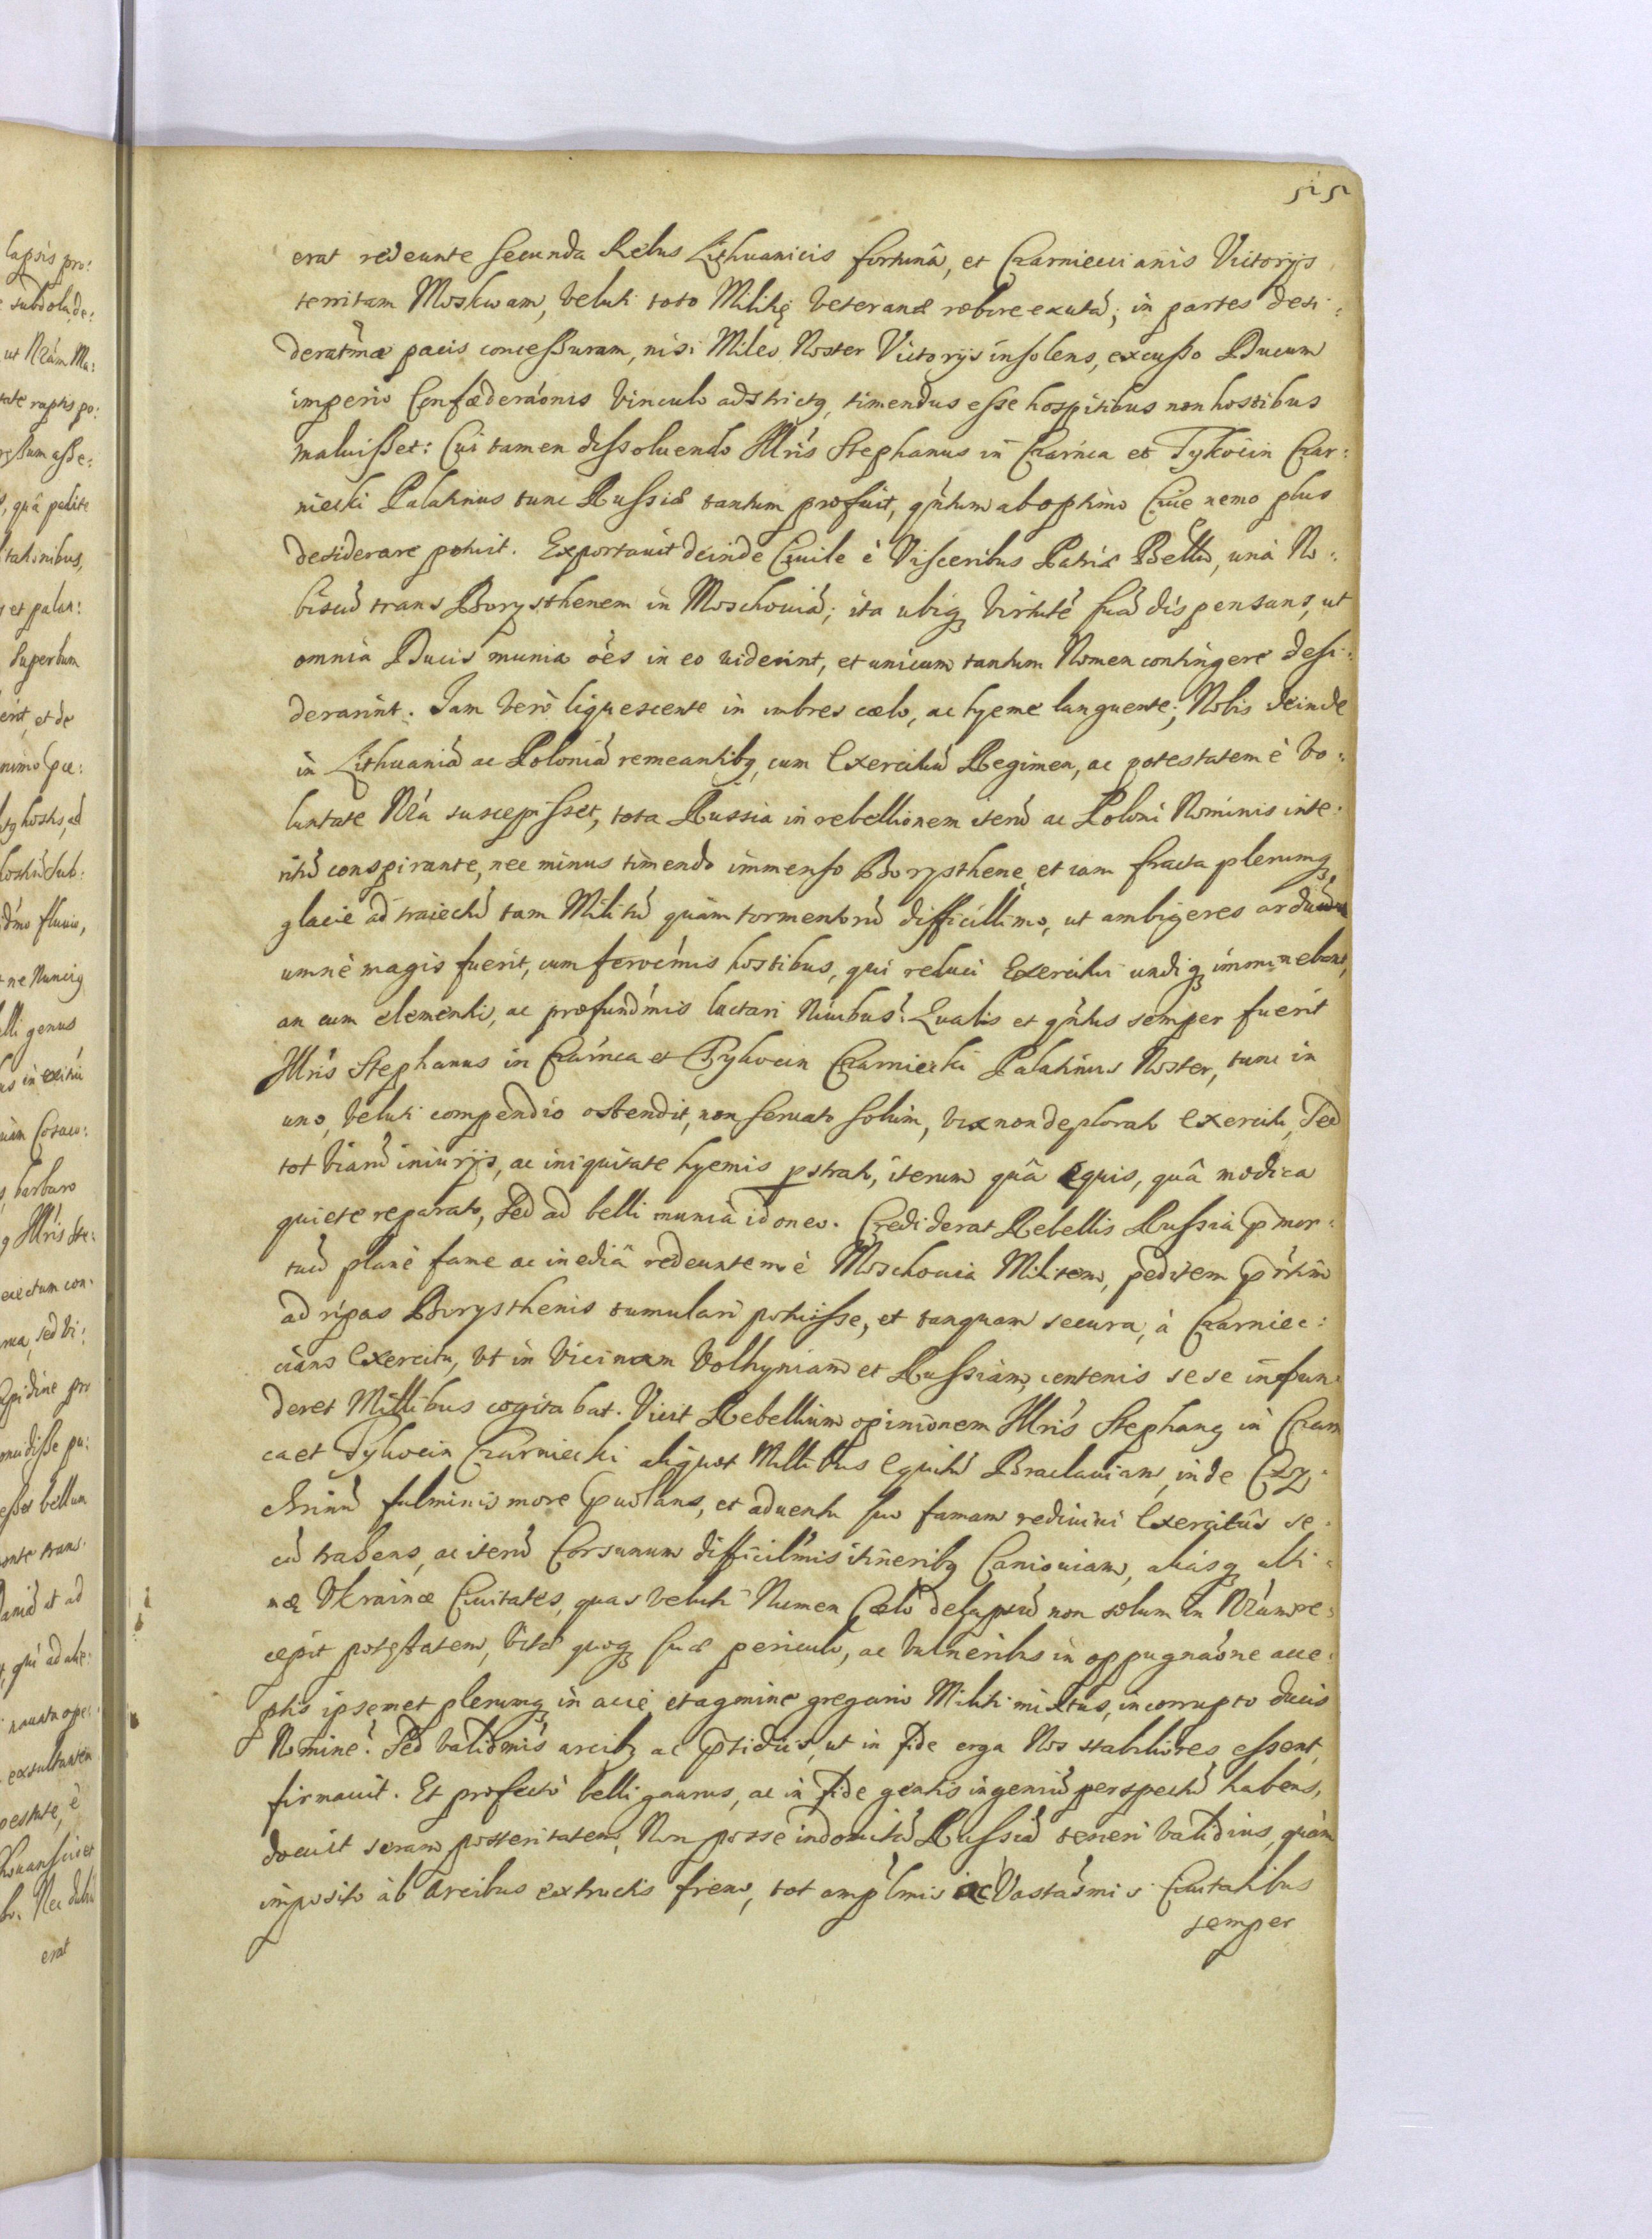 515
erat redeunte secunda Rebus Lithuanicis fortunâ, et Czarniecianis Victorijs
territam Moskwam, veluti toto Militię veteranæ robore exutã; in partes desi:
deratmæ pacis concessuram, nisi Miles Noster Victorijs insolens, excusso Ducum
imperio Confæderaónis vinculo adstrictq, timendus esse hospitibus non hostibus
maluisset: Cui tamen dissoluendo Illris Stephanus in Czarńca et Tykocin Czar:
niecki Palatinus tunc Russiæ tantum profuit, qntum ab optimo Ciue nemo plus
desiderare potuit. Exportauit deinde Ciuile è Visceribus Patriæ Bellũ, unà No:
biscũ trans Borysthenem in Moschouiã; ita ubiq virtutẽ suã dispensans, ut
omnia Ducis munia oẽs in eo uiderint, et unicum tantum Nomen contingere desi:
derarint. Iam verò liquescente in imbres cælo, ac hyeme languente; Nobis deinde
in Lithuaniã ac Poloniã remeantibq, cum Exercitus Regimen, ac potestatem è vo:
luntate Nrã suscepisset, tota Russia in rebellionem iterũ ac Poloni Nominis inte:
ritũ conspirante, nec minus timendo immenso Borysthene, et iam fracta plerumq
glacie ad traiectũ tam Militũ quàm tormentorũ difficillimo, ut ambigeres ardu
umnè magis fuerit, cum ferocimis hostibus, qui reduci Exercitui undiq imminebant,
an cum elementis, ac profundmis luctari Niuibus? Qualis et qntus semper fuerit
Illris Stephanus in Czarńca et Tykocin Czarniecki Palatinus Noster, tunc in
uno, veluti compendio ostendit, non seruato solum, vix non deplorato Exercitu, sed
tot viarũ iniurijs, ac iniquitate hyemis pstrato, iterum quâ equis, quâ modica
quiete reparato, sed ad belli munia idoneo. Crediderat Rebellis Russia pmor:
tuũ planè fame ac inediâ redeuntem è Moschouia Militem, peditem prtim
ad ripas Borysthenis tumulari potuisse, et tanquam secura, à Czarniec:
ciano Exercitu, vt in vicinam Volhyniam et Russiam, centenis sese infun
deret Millibus cogitabat. Vicit Rebellium opinionem Illris Stephanq in Czarn
ca et Tykocin Czarniecki aliquot Millibus Equitũ Braclauiam, inde Czy:
chrinũ fulminis more puolans, et aduentu suo famam rediuiui Exercitûs se:
cũ trahens, ac iterũ Corsunum difficilmis itineribq Caniouiam, aliasq ulti:
mæ Ukrainæ Ciuitates, quas veluti Numen Cælo delapsũ non solum in Nrãm re:
cepit potestatem, vitæ quoq suæ periculo, ac vulneribus in oppugnaóne acce:
ptis ipsemet plerumq in acie, et agmine gregario Militi mixtus, incorrupto ducis
Nomine? Sed validmis arcibq ac psidijs, ut in fide erga Nos stabiliores essent,
firmauit. Et profectò belli gnarus, ac in fide gentis ingeniũ perspectũ habens,
docuit seram posteritatem, Non posse indomitã Russiã teneri validius, quàm
imposito ab arcibus extructis freno, tot amplmis ac Vastasmis Ciuitatibus
semper